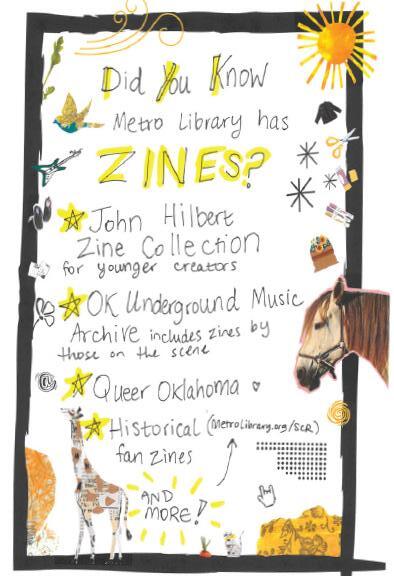 Did You Know
Metro Library has
ZINES?
John Hilbert
Zine Collection
for younger creators
OK Underground Music
Archive includes zines by
those on the scene
Queer Oklahoma
Historical (MetroLibrary.org/SCR)
fan zines
AND
MORE!